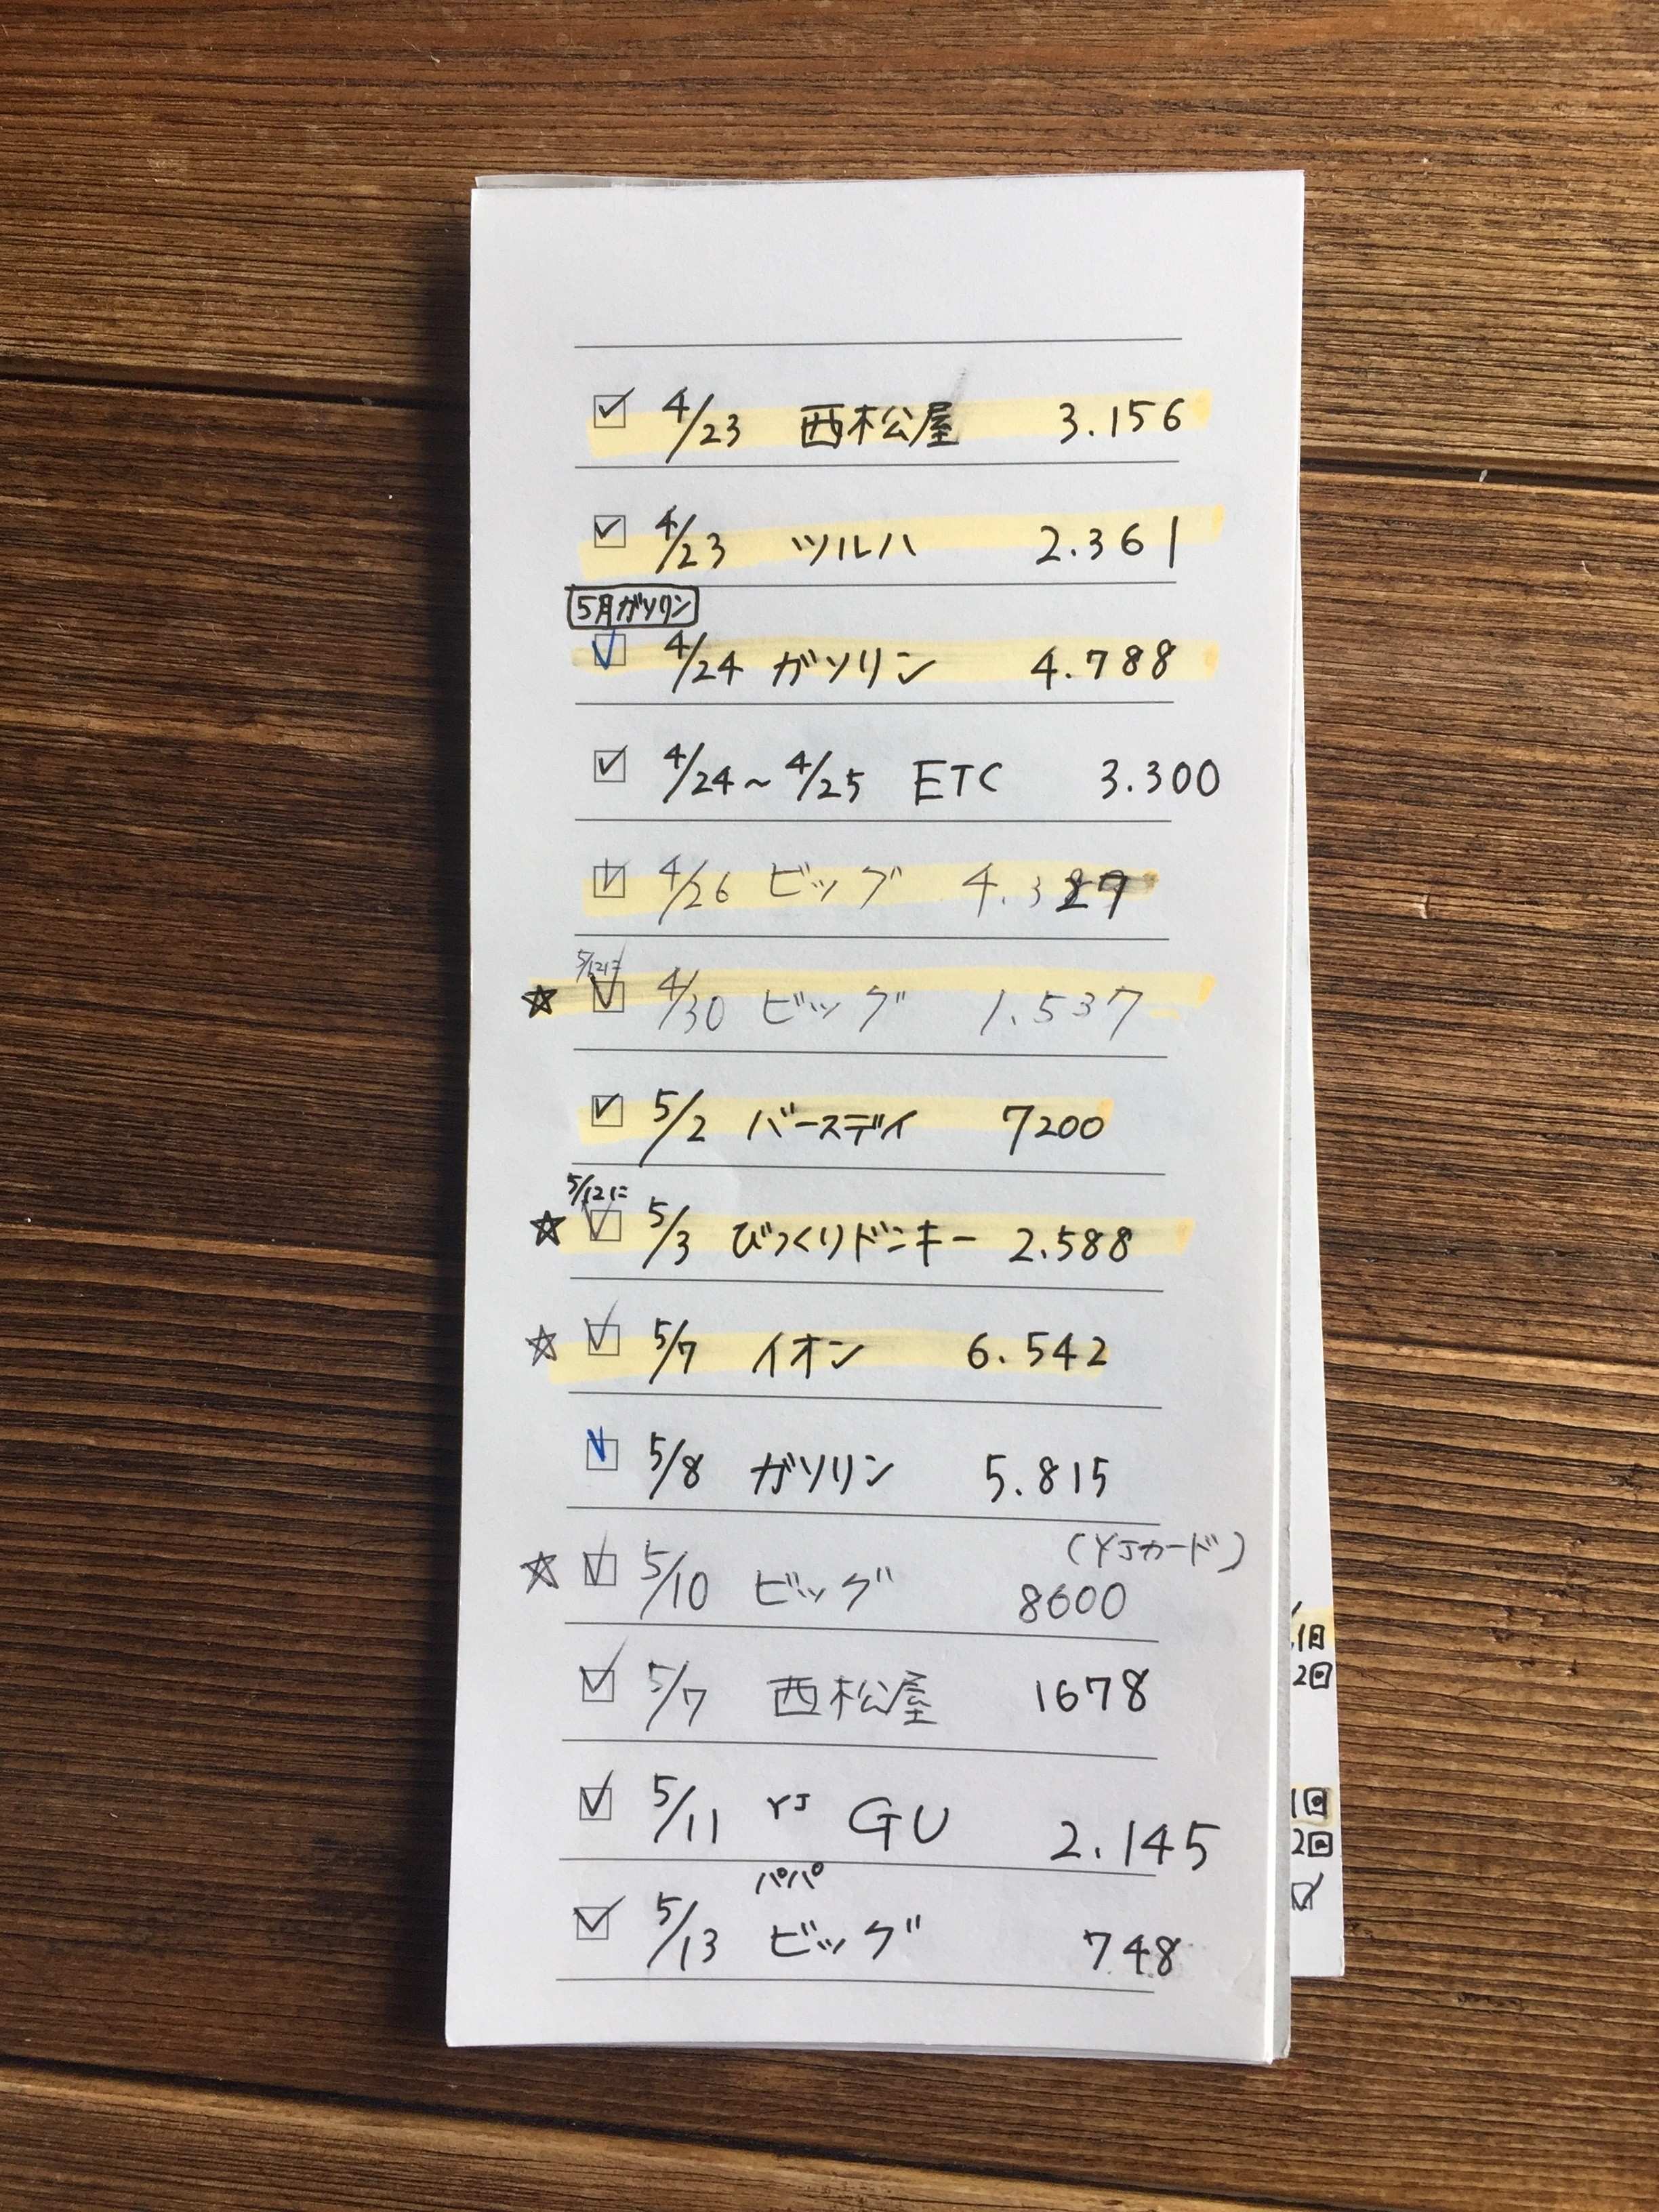 ☑ 4/23 西松屋 3.156
☑ 4/23 ツルハ 2.361
5月ガソリン
☑ 4/24 ガソリン 4.788
☑ 4/24～4/25 ETC 3.300
☑ 4/26 ビッグ 4.327
5/12に
☆ ☑ 4/30 ビッグ 1.537
☑ 5/2 バースデイ 7200
5/12に
☆ ☑ 5/3 びっくりドンキー 2.588
☆ ☑ 5/7 イオン 6.542
☑ 5/8 ガソリン 5.815
(YJカード)
☆ ☑ 5/10 ビッグ 8600
☑ 5/7 西松屋 1678
☑ 5/11 YJ GU 2.145
パパ
☑ 5/13 ビッグ 748
1回
2回
1回
2回